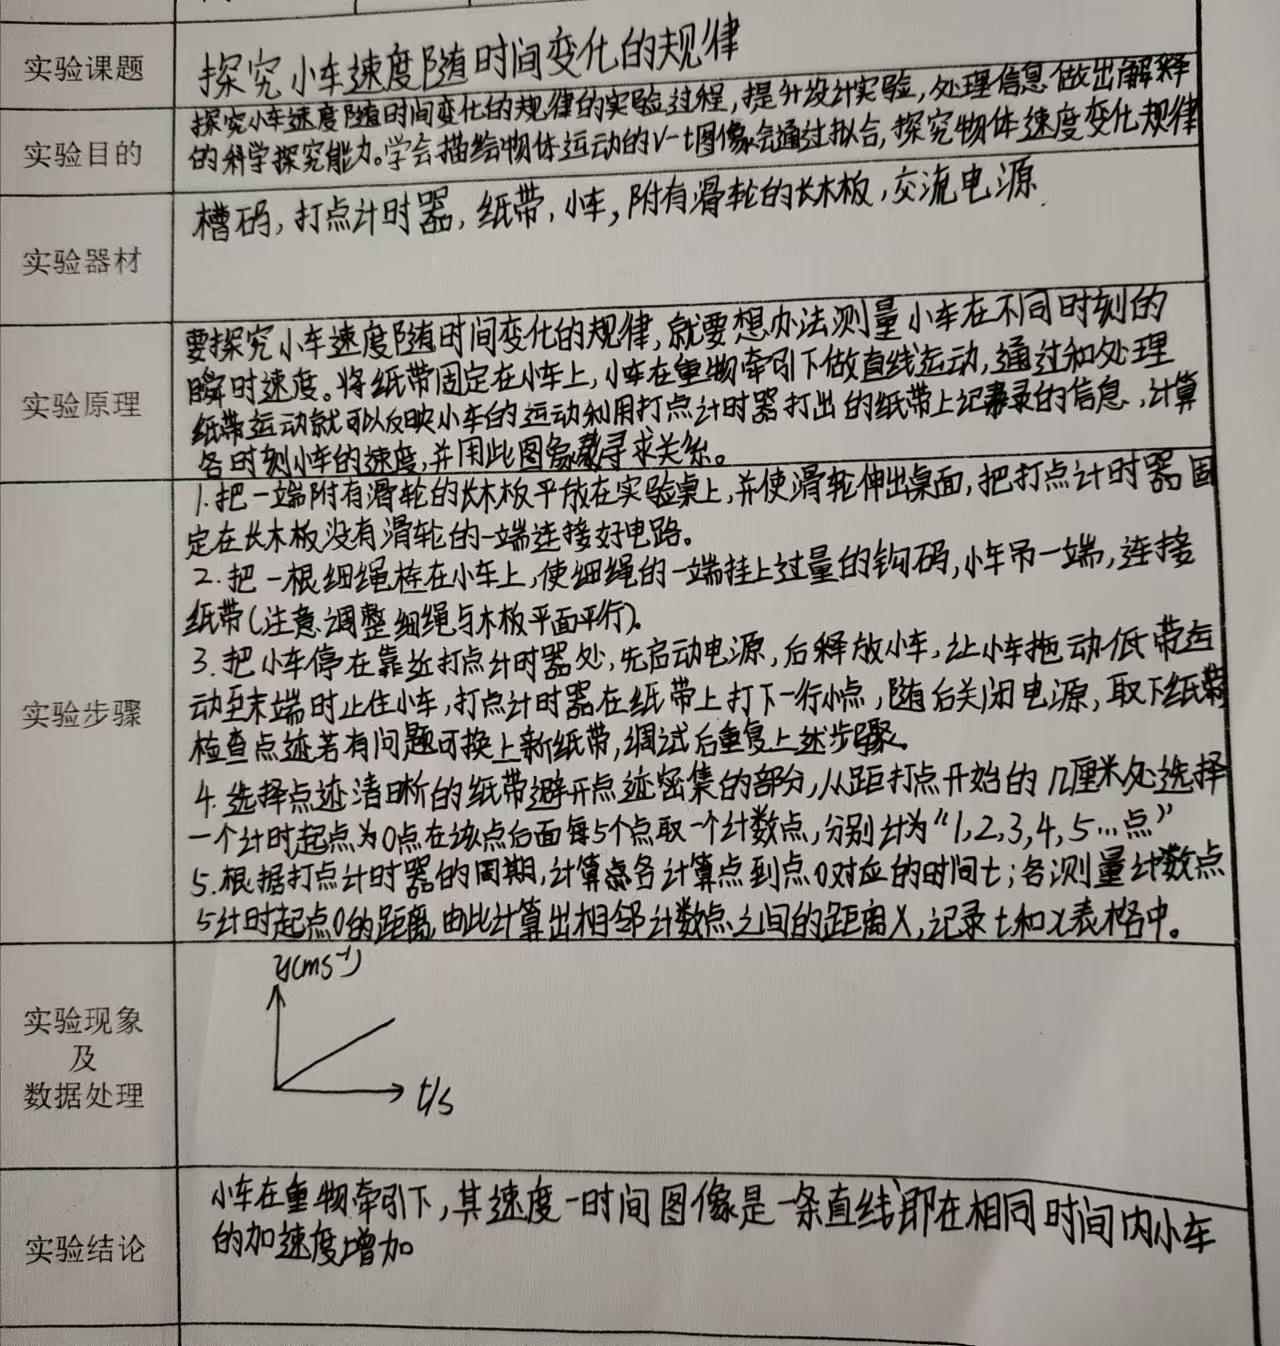 实验课题
探究小车速度随时间变化的规律
实验目的
探究小车速度随时间变化的规律的实验过程，提升设计实验，处理信息做出解释
的科学探究能力。学会描绘物体运动的V-t图像会通过拟合，探究物体速度变化规律
实验器材
槽码，打点计时器，纸带，小车，附有滑轮的长木板，交流电源．
实验原理
要探究小车速度随时间变化的规律，就要想办法测量小车在不同时刻的
瞬时速度。将纸带固定在小车上，小车在重物牵引下做直线运动，通过和处理
纸带运动就可以反映小车的运动利用打点计时器打出的纸带上记录的信息，计算
各时刻小车的速度，并用此图象寻求关系。
实验步骤
1.把一端附有滑轮的长木板平放在实验桌上，并使滑轮伸出桌面，把打点计时器固
定在长木板没有滑轮的一端连接好电路。
2.把一根细绳栓在小车上，使细绳的一端挂上过量的钩码，小车吊一端，连接
纸带(注意调整细绳与木板平面平行)。
3.把小车停在靠近打点计时器处，先启动电源，后释放小车，让小车拖动低带运
动至末端时止住小车，打点计时器在纸带上打下一行小点，随后关闭电源，取下纸带
检查点迹若有问题可换上新纸带，调试后重复上述步骤。
4.选择点迹清晰的纸带避开点迹密集的部分，从距打点开始的几厘米处选择
一个计时起点为0点在该点后面每5个点取一个计数点，分别计为“1,2,3,4,5…点”
5.根据打点计时器的周期，计算各计算点到点0对应的时间t；各测量计数点
5计时起点0的距离，由此计算出相邻计数点之间的距离X，记录t和x表格中。
实验现象
及
数据处理
v(ms⁻¹)
t/s
实验结论
小车在重物牵引下，其速度一时间图像是一条直线，即在相同时间内小车
的加速度增加